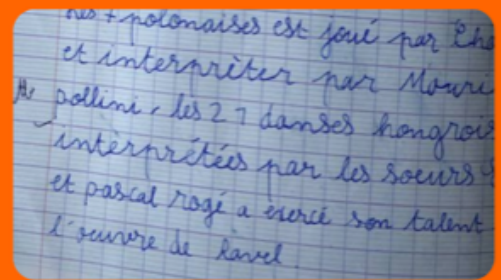 les 7 polonaises est joué par Cho
et interprèter par Mauri
pollini, les 21 danses hongrois
interprétées par les soeurs
et pascal rogé a exercé son talent
l'œuvre de Ravel.